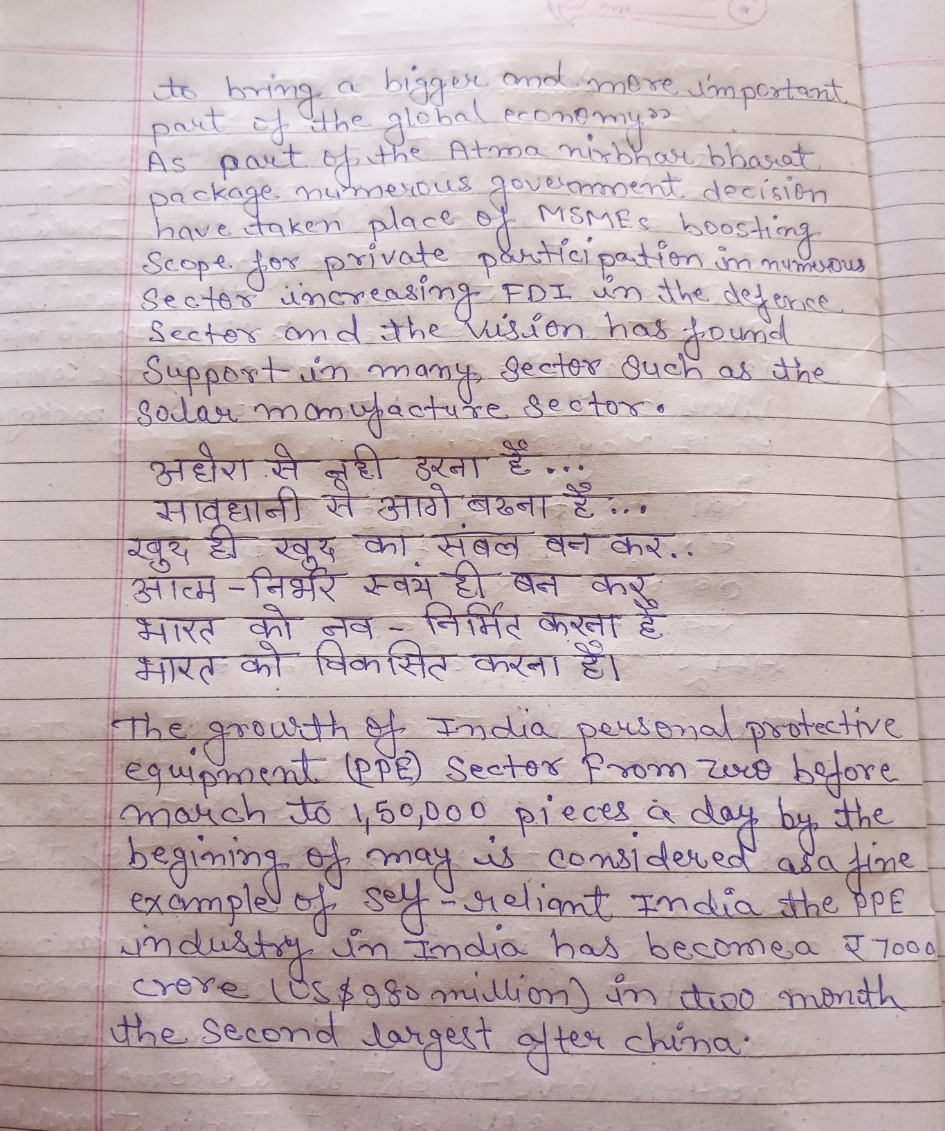 to bring a bigger and more important
part of the global economy"
As part of the Atma nirbhar bharat
package numerous government decision
have taken place of MSMEs boosting
Scope for private participation in numerous
Sector increasing FDI in the defence
Sector and the vision has found
Support in many sector such as the
Soilar manufacture sector.
अधेरा से नही डरना हैं...
सावधानी से आगे बढना हैं...
खुद ही खुद का संबल बन कर..
आत्म-निर्भर स्वयं ही बन कर
भारत को नव-निर्मित करना हैं
भारत को विकसित करना हैं।
The growth of India personal protective
equipment (PPE) Sector From zero before
march to 1,50,000 pieces a day by the
begining of may is considered as a fine
example of self-reliant India the PPE
industry in India has become a ₹ 7000
crore (US $ 980 million) in two month
the second largest after china.